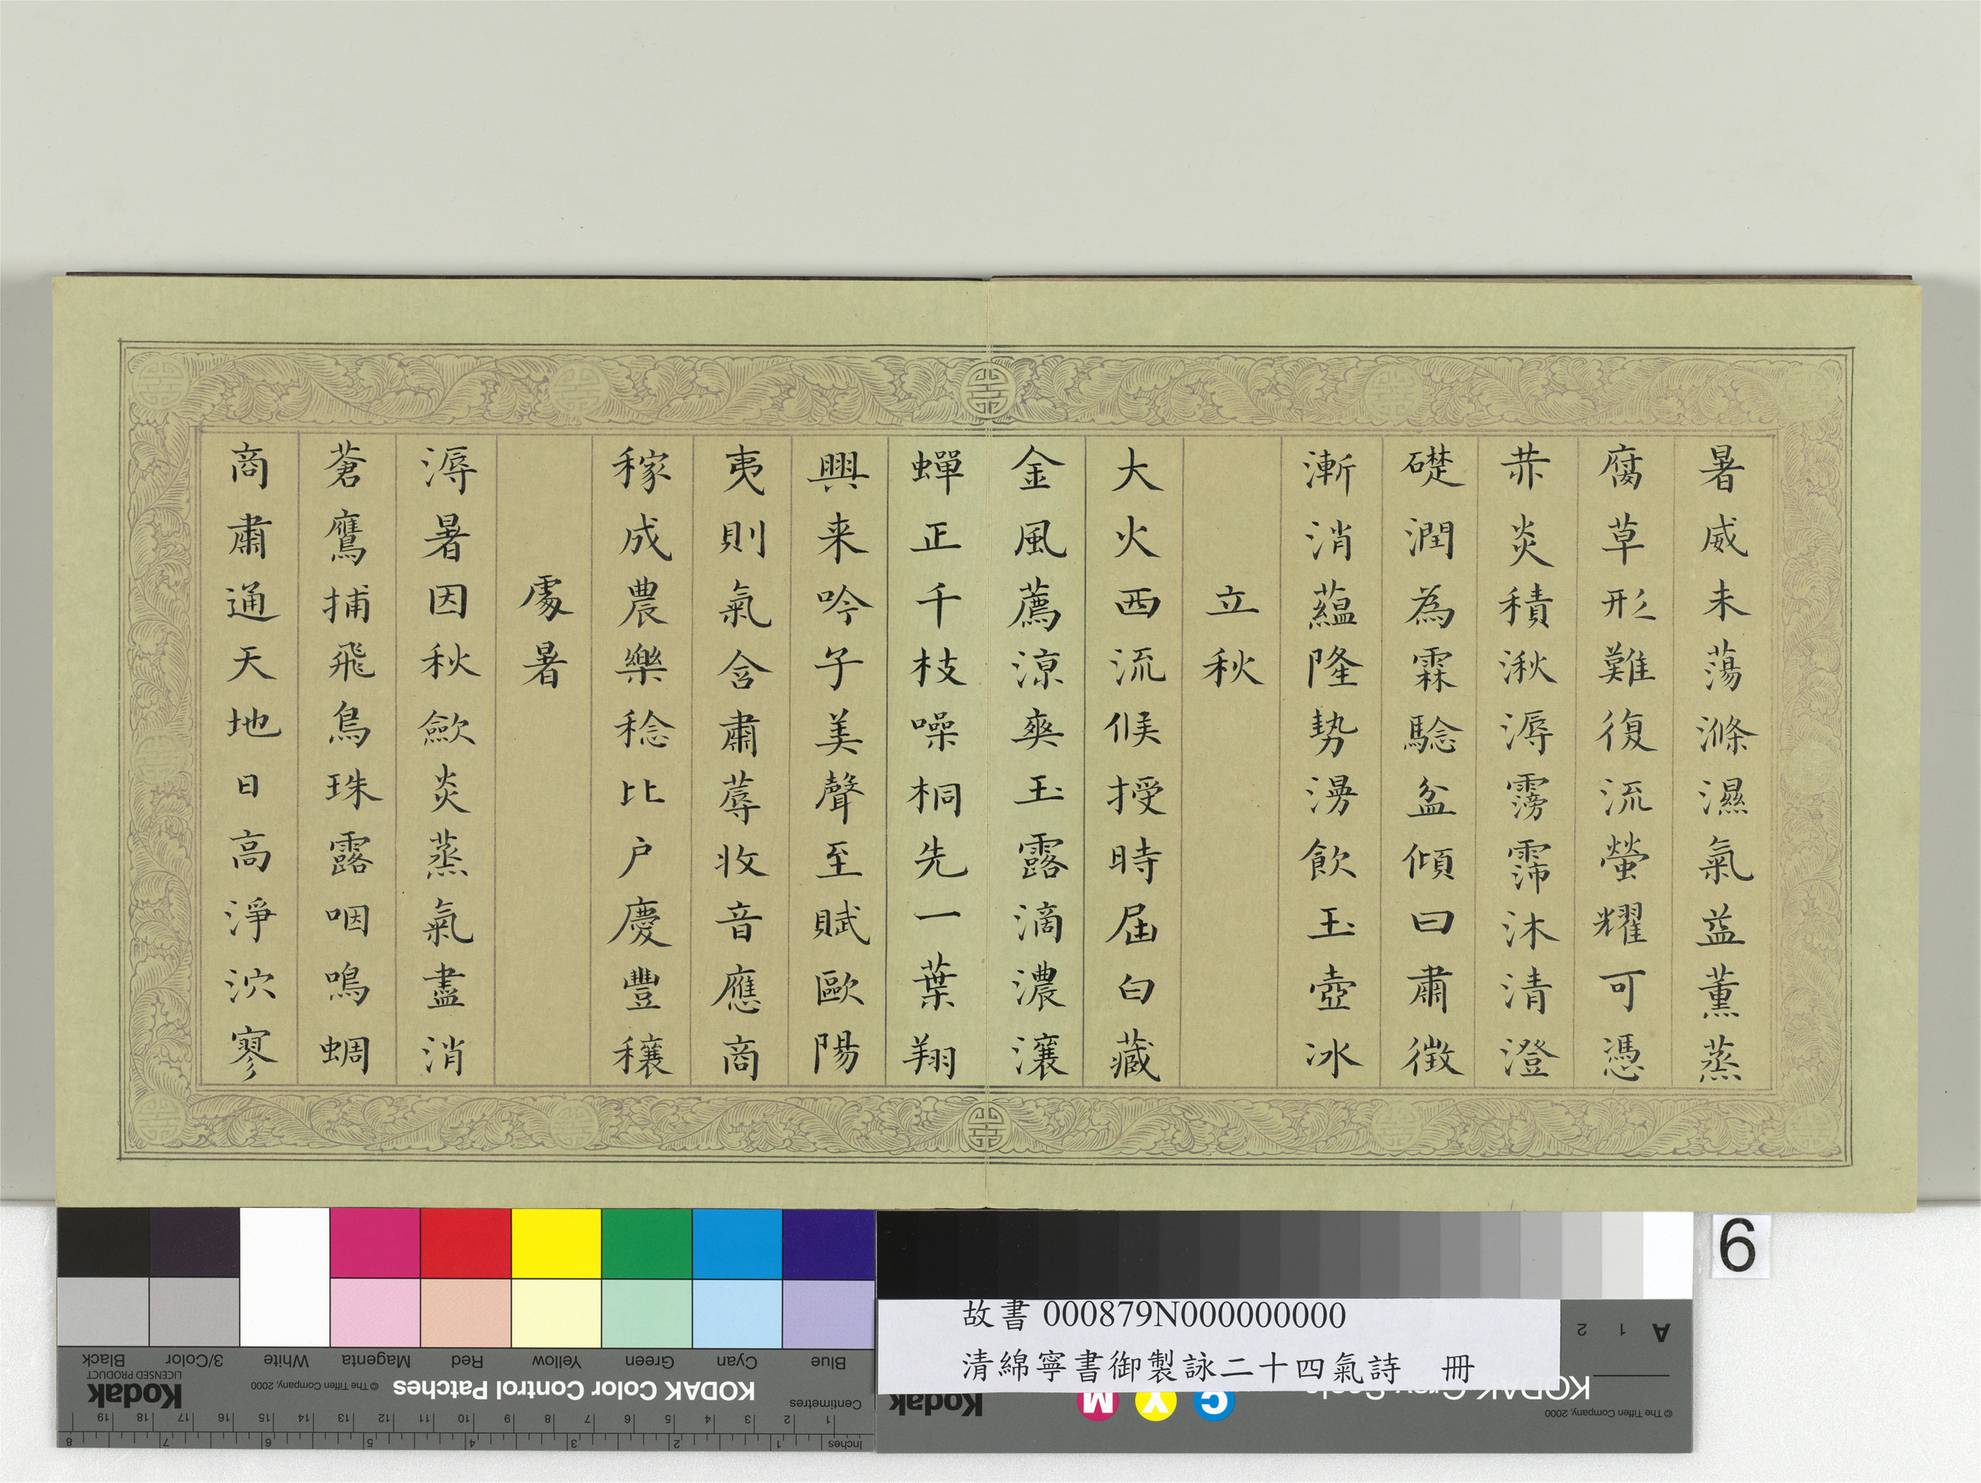 暑威未蕩滌濕氣益薰蒸
腐草形難復流螢耀可憑
茀炎積湫溽霶霈沐清澄
礎潤為霖驗盆傾曰肅徵
漸消蘊隆勢湯飲玉壺冰
立秋
大火西流候授時屆白藏
金風薦涼爽玉露滴濃瀼
蟬正千枝噪桐先一葉翔
興来吟子美聲至賦歐陽
夷則氣含肅蓐收音應商
稼成農樂稔比戶慶豐穰
處暑
溽暑因秋歛炎蒸氣盡消
蒼鷹捕飛鳥珠露咽鳴蜩
商肅通天地日高淨泬寥
6
故書 000879N000000000
清綿寧書御製詠二十四氣詩 冊
Blue Cyan Green Yellow Red Magenta White 3/Color Black
KODAK Color Control Patches
© The Tiffen Company, 2000
Kodak
LICENSED PRODUCT
Centimetres
Inches
A 1 2
© The Tiffen Company, 2000
Kodak
C Y M